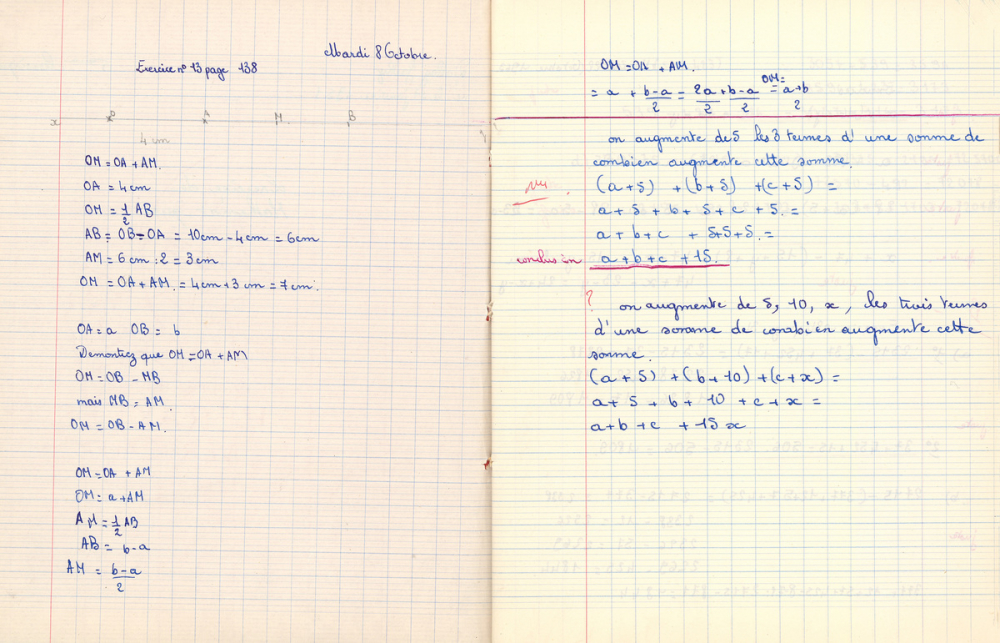 Mardi 8 Octobre.
Exercice n° 13 page 138
x O A M B
4 cm
OM = OA + AM.
OA = 4cm
OM = 1/2 AB
AB = OB - OA = 10cm - 4cm = 6cm
AM = 6cm : 2 = 3cm
OM = OA + AM = 4cm + 3cm = 7cm.
OA = a OB = b
Demontrez que OM = OA + AM
OM = OB - MB
mais MB = AM.
OM = OB - AM.
OM = OA + AM
OM = a + AM
AM = 1/2 AB
AB = b-a
AM = b-a/2
OM = OA + AM.
= a + b-a/2 = 2a/2 + b-a/2 OM = a+b/2
on augmente de 5 les 3 termes d'une somme de
combien augmente cette somme.
Vu (a+5) + (b+5) + (c+5) =
a + 5 + b + 5 + c + 5. =
a + b + c + 5+5+5. =
conclusion a + b + c + 15.
? on augmente de 5, 10, x, les trois termes
d'une somme de combien augmente cette
somme.
(a + 5) + (b + 10) + (c + x) =
a + 5 + b + 10 + c + x =
a + b + c + 15 x